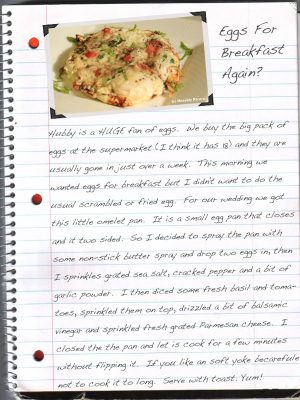 Eggs For
Breakfast
Again?
Hubby is a HUGE fan of eggs. We buy the big pack of
eggs at the supermarket (I think it has 18) and they are
usually gone in just over a week. This morning we
wanted eggs for breakfast but I didn't want to do the
usual scrambled or fried egg. For our wedding we got
this little omelet pan. It is a small egg pan that closes
and it two sided. So I decided to spray the pan with
some non-stick butter spray and drop two eggs in, then
I sprinkles grated sea salt, cracked pepper and a bit of
garlic powder. I then diced some fresh basil and toma-
toes, sprinkled them on top, drizzled a bit of balsamic
vinegar and sprinkled fresh grated Parmesan cheese. I
closed the the pan and let is cook for a few minutes
without flipping it. If you like an soft yoke becarefule
not to cook it to long. Serve with toast. Yum!